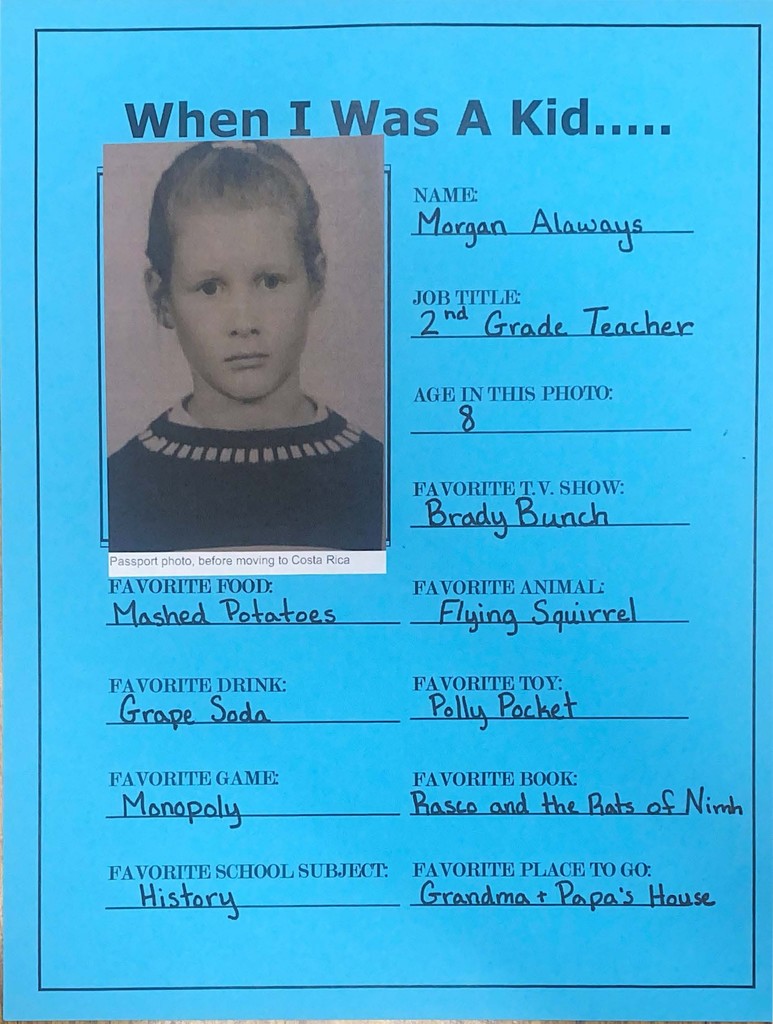 When I Was A Kid.....
NAME:
Morgan Alaways
JOB TITLE:
2nd Grade Teacher
AGE IN THIS PHOTO:
8
FAVORITE T.V. SHOW:
Brady Bunch
Passport photo, before moving to Costa Rica
FAVORITE FOOD:
Mashed Potatoes
FAVORITE ANIMAL:
Flying Squirrel
FAVORITE DRINK:
Grape Soda
FAVORITE TOY:
Polly Pocket
FAVORITE GAME:
Monopoly
FAVORITE BOOK:
Rasco and the Rats of Nimh
FAVORITE SCHOOL SUBJECT:
History
FAVORITE PLACE TO GO:
Grandma + Papa's House